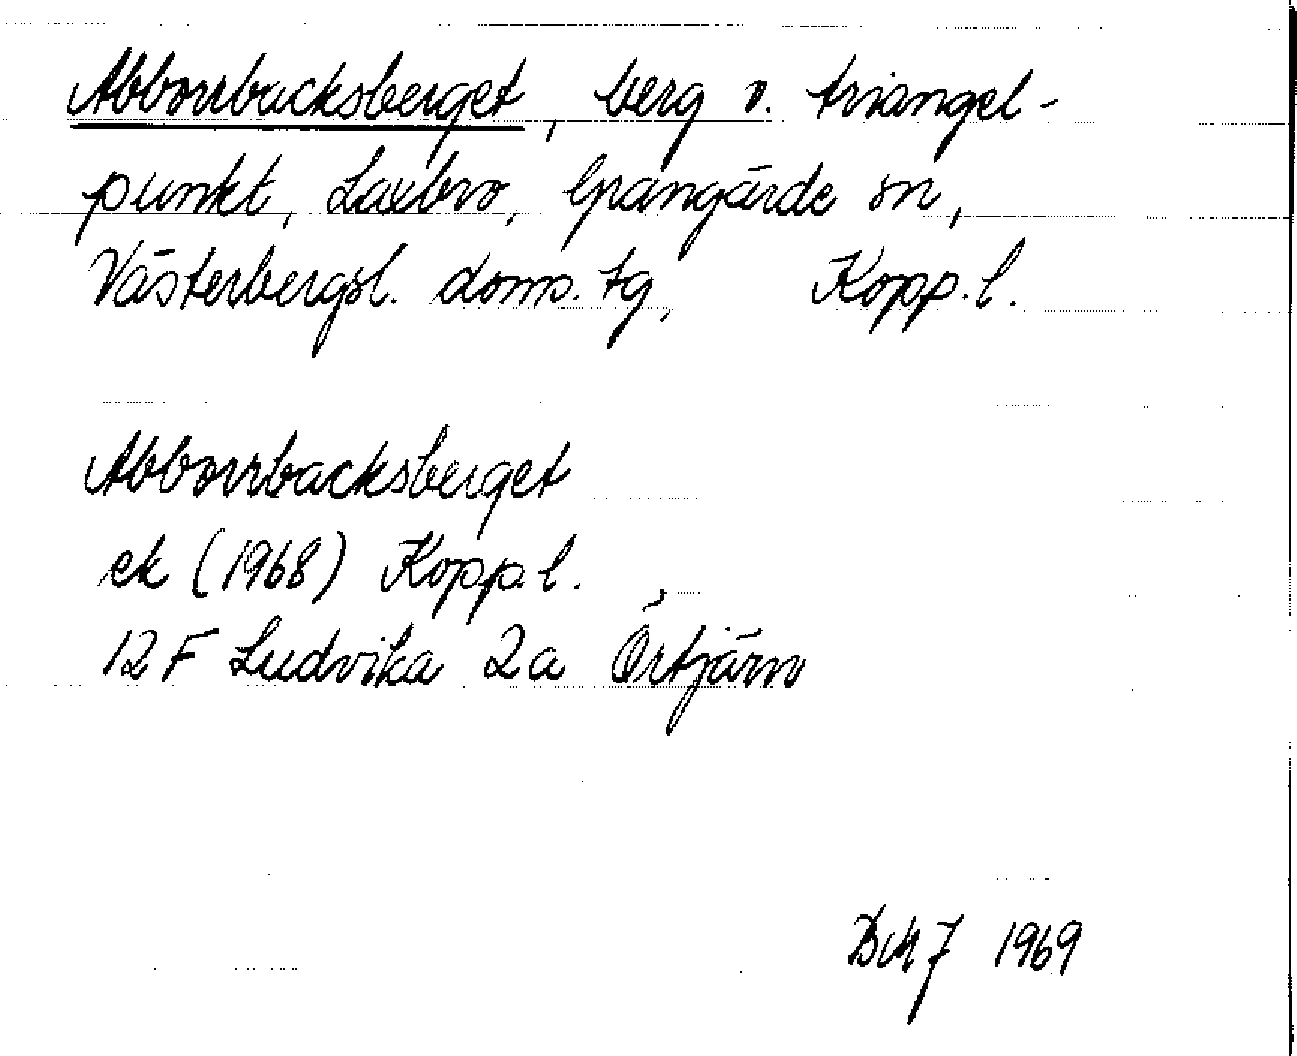 Abborrbacksberget, berg v. triangel-
punkt, Laxbro, Grangärde sn,
Västerbergsl. doms. tg, Kopp. l.
Abborrbacksberget
ek (1968) Kopp l.
12 F Ludvika 2a Örtjärn
1969